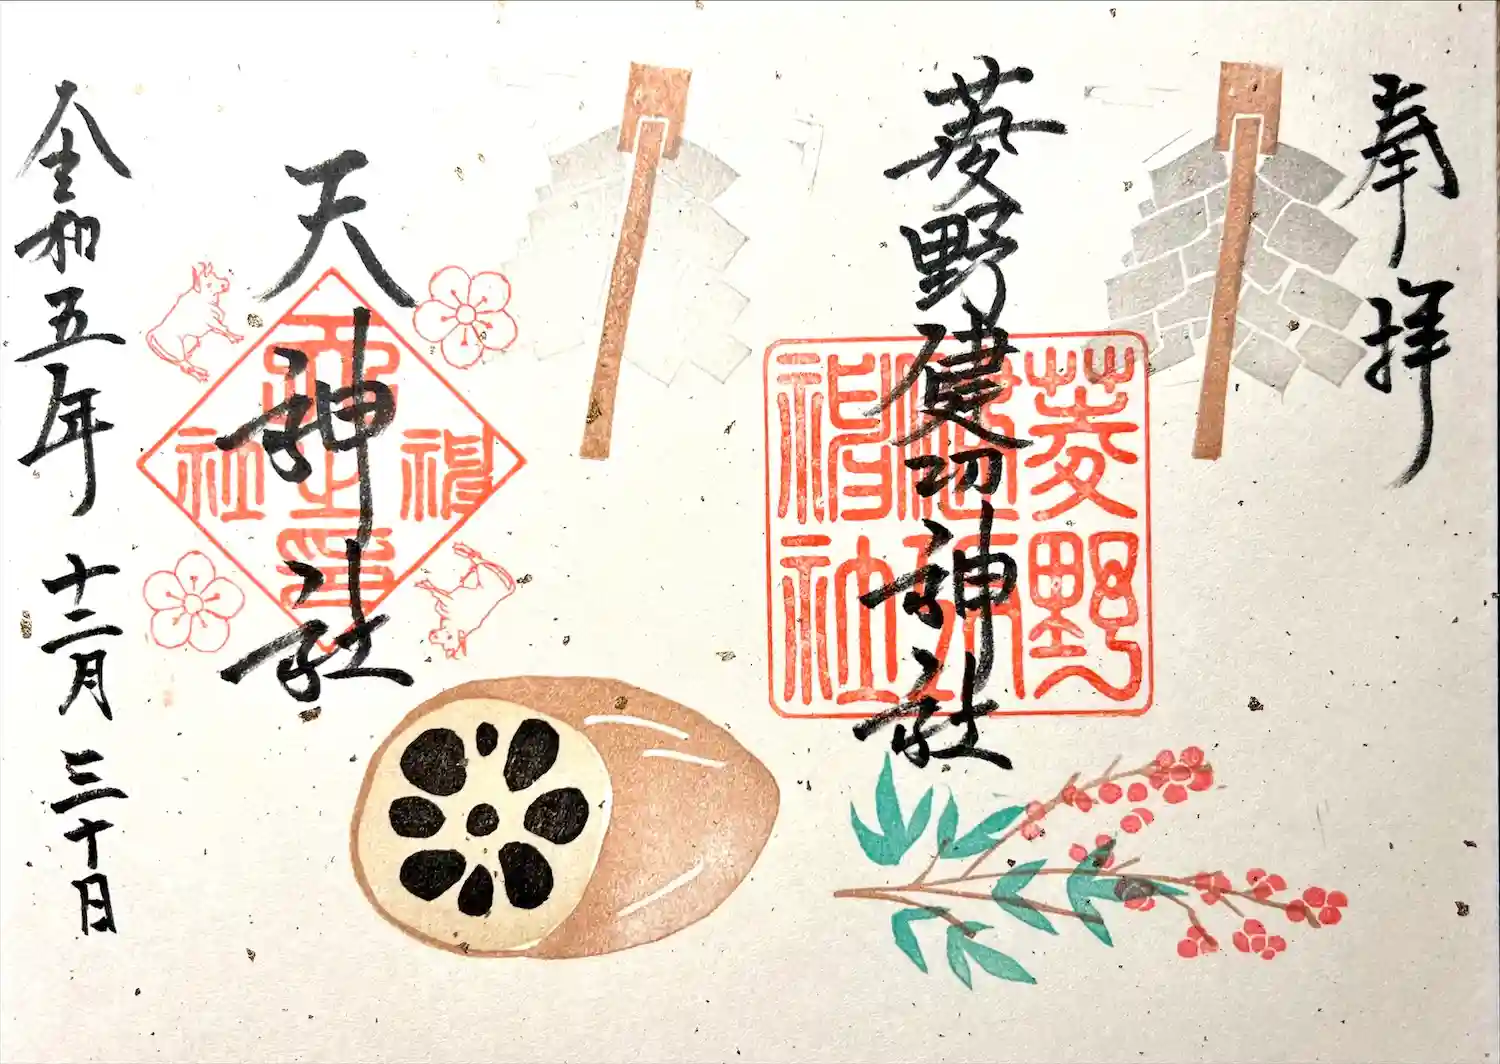 奉拝
菱野健功神社
菱野
健功
神社
天神社
天
神之社
璽
令和五年 十二月 三十日